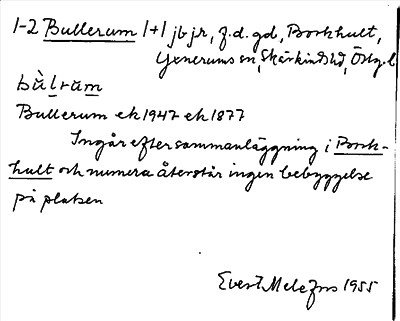 1-2 Bullerum 1+1 jbjr, f.d. gd, Borkhult,
Yxnerums sn, Skärkinds hd, Östg. l
bùlrum
Bullerum ek 1947 ek 1877
Ingår efter sammanläggning i Bork-
hult och numera återstår ingen bebyggelse
på platsen
Evert Melefors 1955